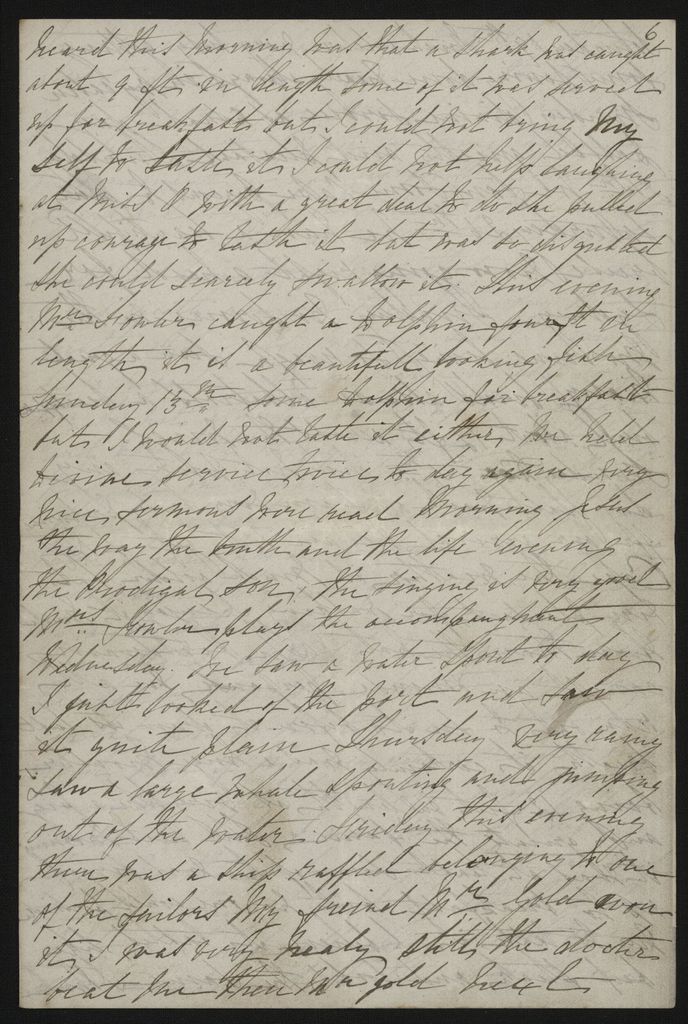 6
heard this morning was that a shark was caught
about 9 fts in length some of it was served
up for breakfast but I could not bring my
self to taste it I could not help laughing
at Miss O with a great deal to do she pulled
up courage to taste it but was so disgusted
she could scarcely swallow it. This evening
Mr Fowler caught a dolphin four ft in
length it is a beautifull looking fish
Sunday 13th some dolphin for breakfast
but I would not taste it either We held
Divine service twice to day again very
nice sermons were read Morning Jesus
the way the truth and the life evening
the Prodigal Son, the singing is very good
Mrs Fowler plays the
Wednesday. We saw a water spout to day
I just looked of the port and saw
it quite plain Thursday very rainy
saw a large whale spouting and jumping
out of the water. Friday this evening
there was a ship raffled belonging to one
of the sailors My freind Mr Gold won
it I was very nealy still the doctor
beat me then Mr gold next